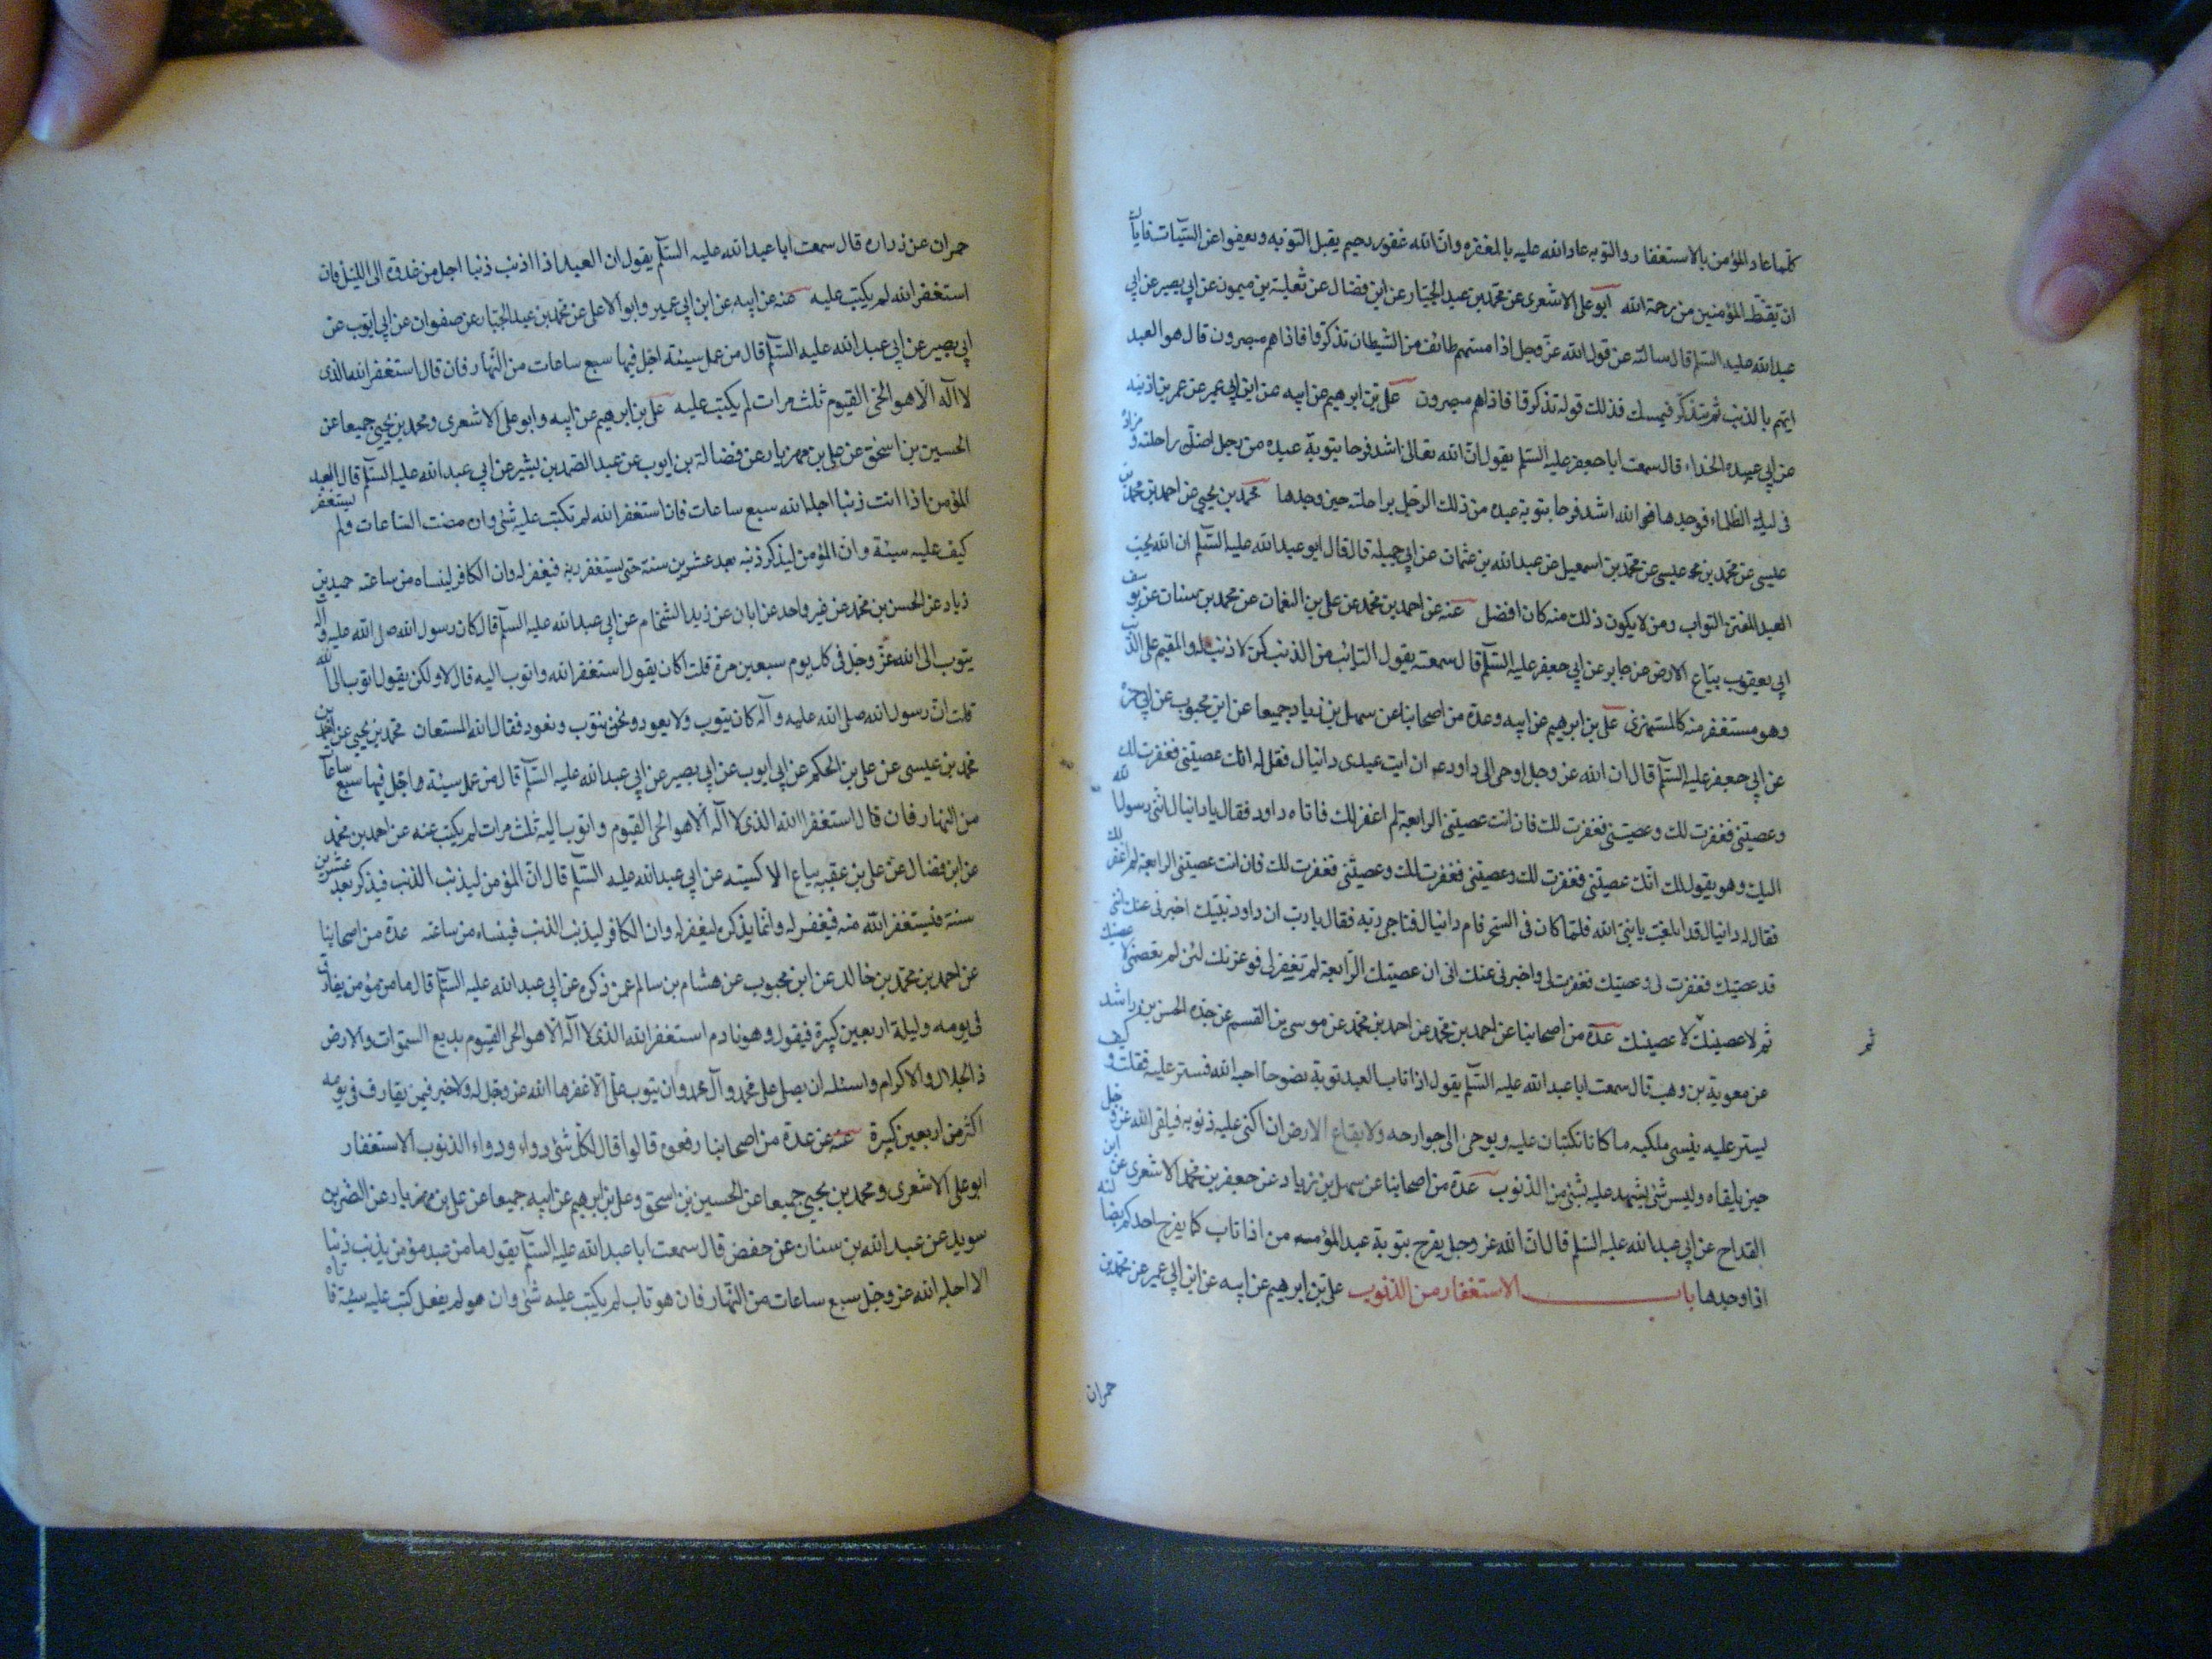 كلما عاد المؤمن بالاستغفار والتوبه عاد الله عليه بالمغفره وان الله غفور رحيم يقبل التوبه ويعفوا عن السيّات فاياك
ان تقنّط المؤمنين من رحمة الله ابو على الاشعرى عن محمد بن عبد الجبّار عن ابن فضال عن ثعلبة بن ميمون عن ابى بصير عن ابى
عبد الله عليه السلم قال سالته عن قول الله عزّ وجل اذا مستهم طائف من الشيطان تذكروا فاذا هم مبصرون قال هو العبد
ايتم بالذنب ثم يتذكّر فيمسك فذلك قوله تذكروا فاذاهم مبصرون على بن ابرهيم عن ابيه عن ابن ابى عمير عن عمر بن اذينه
عن ابى عبيده الحذاء قال سمعت ابا جعفر عليه السّلم يقول انّ الله تعالى اشد فرحا بتوبة عبده من رجل اضلّ راحلته و مزاده
فى ليلة الظلماء فوجدها فهو الله اشد فرحا بتوبة عبده من ذلك الرجل براحلته حين وجدها محمد بن يحيى عن احمد بن محمد بن
عيسى عن محمد بن عيسى عن محمد بن اسمعيل عن عبد الله بن عثمان عن ابى جميلة قال قال ابو عبد الله عليه السّلم ان الله يحب
العبد المفتن التواب ومن لا يكون ذلك منه كان افضل عنه عن احمد بن محمد عن على بن النعمان عن محمد بن سنان عن يوسف
ابى يعقوب بيّاع الارض عن جابر عن ابى جعفر عليه السّلم قال سمعته يقول التايب من الذنب كمن لا ذنب له والمقيم على الذنب
وهو مستغفر منه كالمستهزئ على بن ابرهيم عن ابيه وعدة من اصحابنا عن سهل بن زياد جميعا عن ابن محبوب عن ابى حمزه
عن ابى جعفر عليه السّلم قال ان الله عز وجل اوحى الى داود ع ان ايت عبدى دانيال فقل له انك عصيتنى فغفرت لك
وعصيتنى فغفرت لك وعصيتنى فغفرت لك فان انت عصيتنى الرابعة لم اغفر لك فاتاه داود فقال يا دانيال انّنى رسول الله
اليك وهو يقول لك انّك عصيتنى فغفرت لك وعصيتنى فغفرت لك وعصيتنى فغفرت لك فان انت عصيتنى الرابعة لم اغفر لك
فقال له دانيال قد ابلغت يا نبىّ الله فلمّا كان فى السّحر قام دانيال فناجى ربّه فقال يا ربّ ان داود نبيّك اخبرنى عنك اننى
قد عصيتك فغفرت لى وعصيتك فغفرت لى واخبرنى عنك انى ان عصيتك الرّابعة لم تغفر لى فوعزتك لئن لم تعصمنى لا عصينك
ثم لا عصينك ثم لا عصينك عدة من اصحابنا عن احمد بن محمد عن احمد بن محمد عن موسى بن القسم عن جدّه الحسن بن راشد
عن معوية بن وهب قال سمعت ابا عبد الله عليه السّلم يقول اذا تاب العبد توبة نصوحا احبه الله فستر عليه فقلت وكيف
يستر عليه ينسى ملكيه ما كانا يكتبان عليه ويوحى الى جوارحه ولا بقاع الارض ان اكتمى عليه ذنوبه فيلقى الله عز وجل
حين يلقاه وليس شئ يشهد عليه بشئ من الذنوب عدة من اصحابنا عن سهل بن زياد عن جعفر بن محمد الاشعرى عن ابن
القداح عن ابى عبد الله عليه السّلم قال انّ الله عز وجل يفرح بتوبة عبد المؤمن من اذا تاب كما يفرح احدكم بضالته
اذا وجدها باب الاستغفار من الذنوب على بن ابرهيم عن ابيه عن ابن ابى عمير عن محمد بن
حمران
حمران عن زراره قال سمعت ابا عبد الله عليه السّلم يقول ان العبد اذا اذنب ذنبا اجل من غدوة الى الليل فان
استغفر الله لم يكتب عليه عنه عن ابيه عن ابن ابى عمير وابو الاعلى عن محمد بن عبد الجبّار عن صفوان عن ابى ايوب عن
ابى بصير عن ابى عبد الله عليه السّلم قال من عمل سيئة اجل فيها سبع ساعات من النّهار فان قال استغفر الله الذى
لا اله الّا هو الحىّ القيوم ثلث مرات لم يكتب عليه على بن ابرهيم عن ابيه وابو على الاشعرى ومحمد بن يحيى جميعا عن
الحسين بن اسحق عن على بن مهزيار عن فضالة بن ايوب عن عبد الصمد بن بشير عن ابى عبد الله عليه السّلم قال العبد
المؤمن اذا اذنب ذنبا اجله الله سبع ساعات فان استغفر الله لم تكتب عليه شئ وان مضت الساعات ولم يستغفر
كيف عليه سيئة وان المؤمن ليذكر ذنبه بعد عشرين سنة حتى يستغفر ربه فيغفر له وان الكافر لينساه من ساعته حميد بن
زياد عن الحسن بن محمد عن غير واحد عن ابان عن زيد الشحّام عن ابى عبد الله عليه السلم قال كان رسول الله صلى الله عليه وآله
يتوب الى الله عزّ وجلّ فى كل يوم سبعين مرة قلت اكان يقول استغفر الله واتوب اليه قال لا ولكن يقول اتوب الى الله
قلت انّ رسول الله صلى الله عليه وآله كان يتوب ولا يعود ونحن نتوب ونعود فقال الله المستعان محمد بن يحيى عن احمد بن
محمد بن عيسى عن على بن الحكم عن ابى ايوب عن ابى بصير عن ابى عبد الله عليه السّلم قال من عمل سيئة اجّل فيها سبع ساعات
من النهار فان قال استغفر الله الذى لا اله الا هو الحى القيوم واتوب اليه ثلث مرات لم يكتب عنه عن احمد بن محمد
عن ابن فضال عن على بن عقبه بياع الاكسيته عن ابى عبد الله عليه السّلم قال انّ المؤمن ليذنب الذنب فيذكر بعد عشرين
سنة فيستغفر الله منه فيغفر له وانما يذكره ليغفر له وان الكافر ليذنب الذنب فينساه من ساعته عدة من اصحابنا
عن احمد بن محمد بن خالد عن ابن محبوب عن هشام بن سالم عمن ذكره عن ابى عبد الله عليه السّلم قال ما من مؤمن يقارف
فى يومه وليلة اربعين كبيرة فيقول وهو نادم استغفر الله الذى لا اله الّا هو الحى القيوم بديع السموات والارض
ذا الجلال والاكرام واسئله ان يصلى على محمد وآل محمد وان يتوب علىّ الّا غفرها الله عز وجل له ولا خير فيمن يقارف فى يومه
اكثر من اربعين كبيرة عنه عن عدة من اصحابنا رفعوه قالوا قال لكلّ شئ دواء ودواء الذنوب الاستغفار
ابو على الاشعرى ومحمد بن يحيى جميعا عن الحسين بن اسحق وعلى بن ابرهيم عن ابيه جميعا عن على بن مهزيار عن النضر بن
سويد عن عبد الله بن سنان عن حفض قال سمعت ابا عبد الله عليه السّلم يقول ما من عبد مؤمن يذنب ذنبا
الا اجله الله عز وجل سبع ساعات من النّهار فان هو تاب لم يكتب عليه شئ وان هو لم يفعل كتب عليه سيئة فاتاه